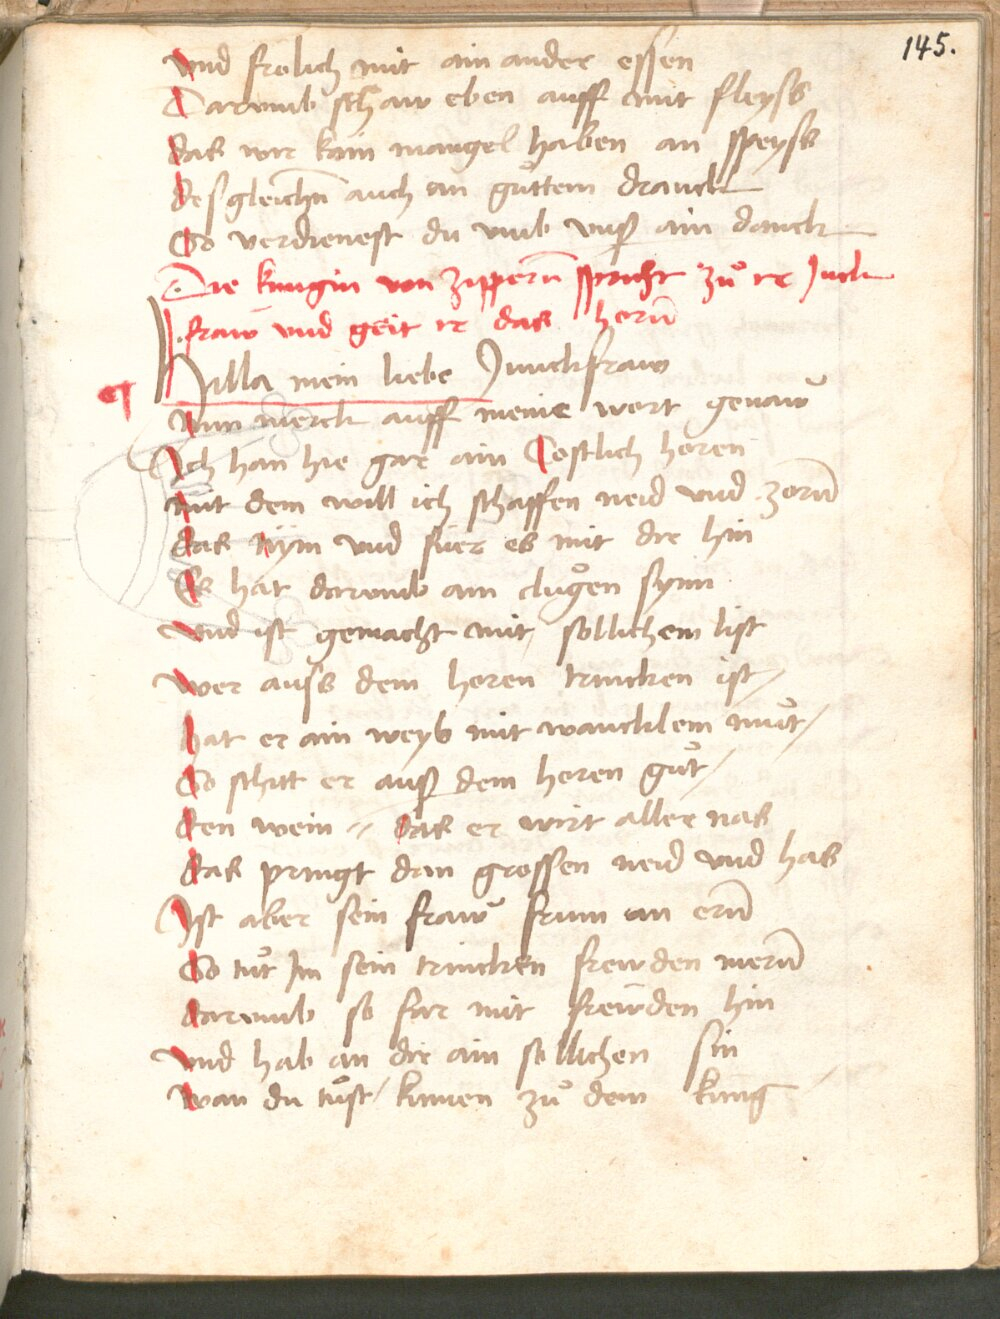 145.
vnd frolich mit ain ander essen
Darvmb schaw eben auff mit fleyss
das wir kain mangel haben an speyss
desgleichn̄ auch an gůttem dranck
So verdienest du vmb vnß ain danck
Die kungin von Zippern̄ spricht zů ir Junck
fraw vnd geit ir das horn̄
Hilla mein liebe Junckfraw
Nun merck auff meine wort genaw
Ich han hie gar ain Costlich horen
mit dem will ich schaffen neid vnd zorn̄
das nym vnd fuer es mit dir hin
Es hat darvmb ain clůgen synn
vnd ist gemacht mit sollichem list
wer auss dem horen trincken ist
hat er ain weyb mit wancklem můt
So schitt er auß dem horen gůt
den wein das er wirt aller nas
das pringt dan grossen neid vnd has
Ist aber sein fraw frum an ern̄
So tůt Im sein trincken frewden mern̄
darvmb so far mit frewden hin
vnd hab an dir ain sollichen sin
wan du tůst kumen zů dem kung